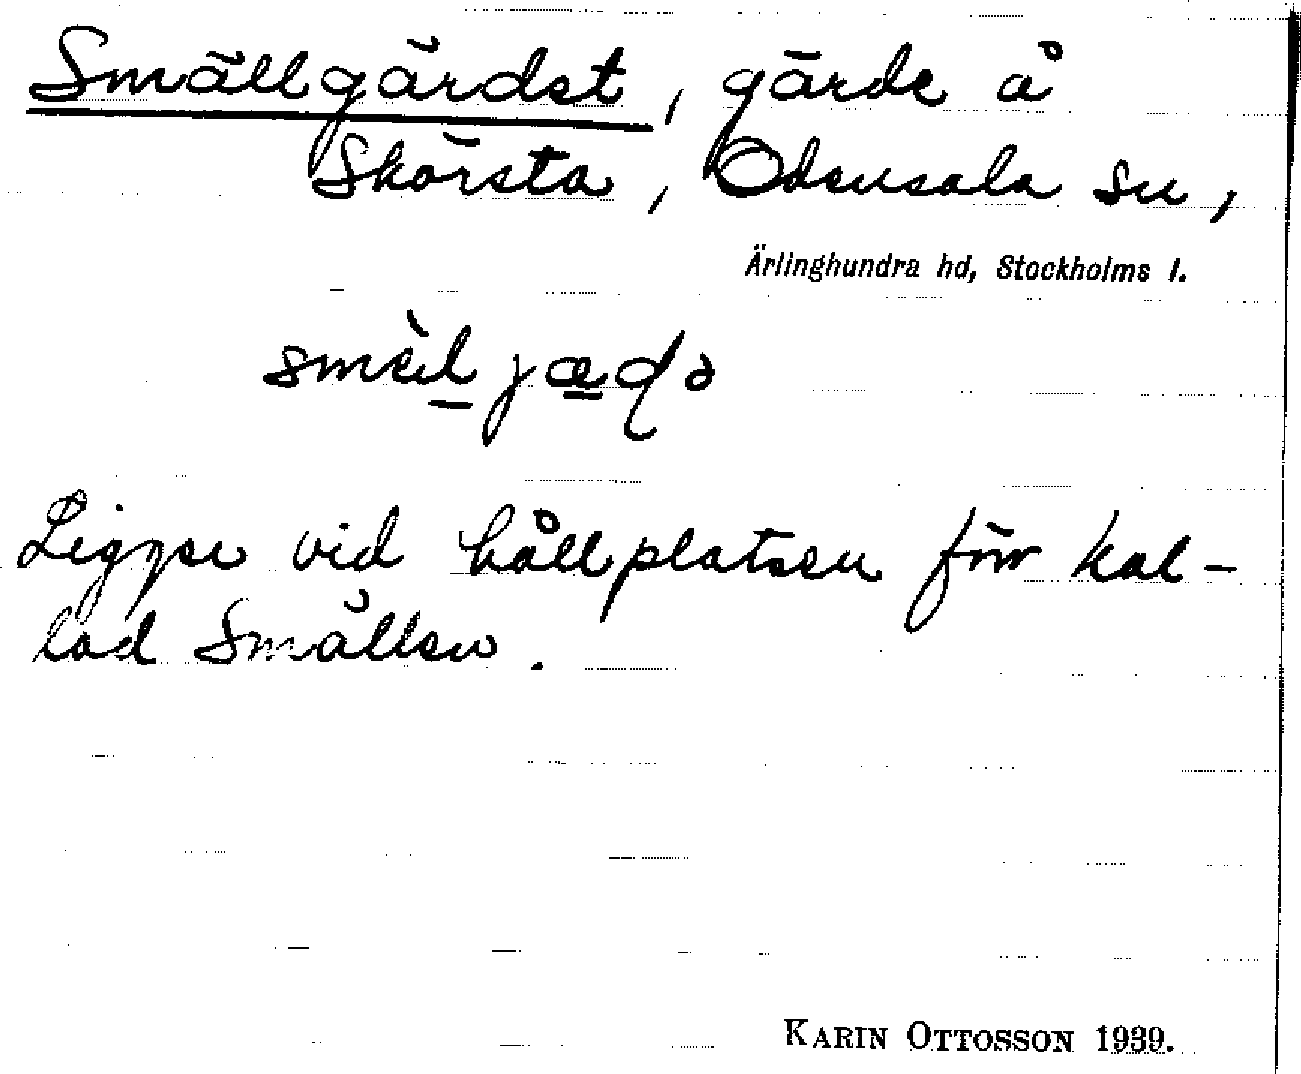 Smällgärdet, gärde å
Skörsta, Odensala sn,
Ärlinghundra hd, Stockholms l.
Ligger vid hållplatsen förr kal-
lad Smällen.
KARIN OTTOSSON 1939.